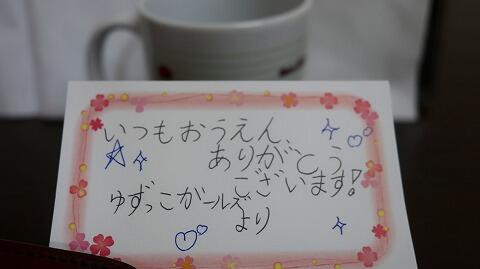 いつもおうえん
ありがとう
ございます!
ゆずっこガールズ
より